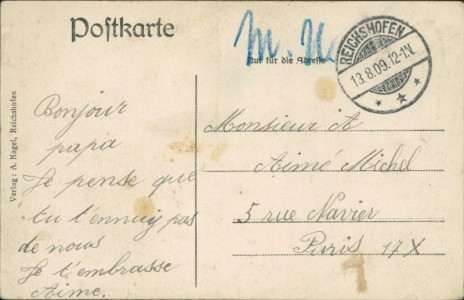 Postkarte
M. U
Nur für die Adresse
REICHSHOFEN
13.8.09.12-1N.
Verlag: A. Nagel, Reichshofen
Bonjour
papa
Je pense que
tu t'ennuy pas
de nous
Je t'embrasse
Aime.
Monsieur A
Aimé Michel
5 rue Navier
Paris 17 X